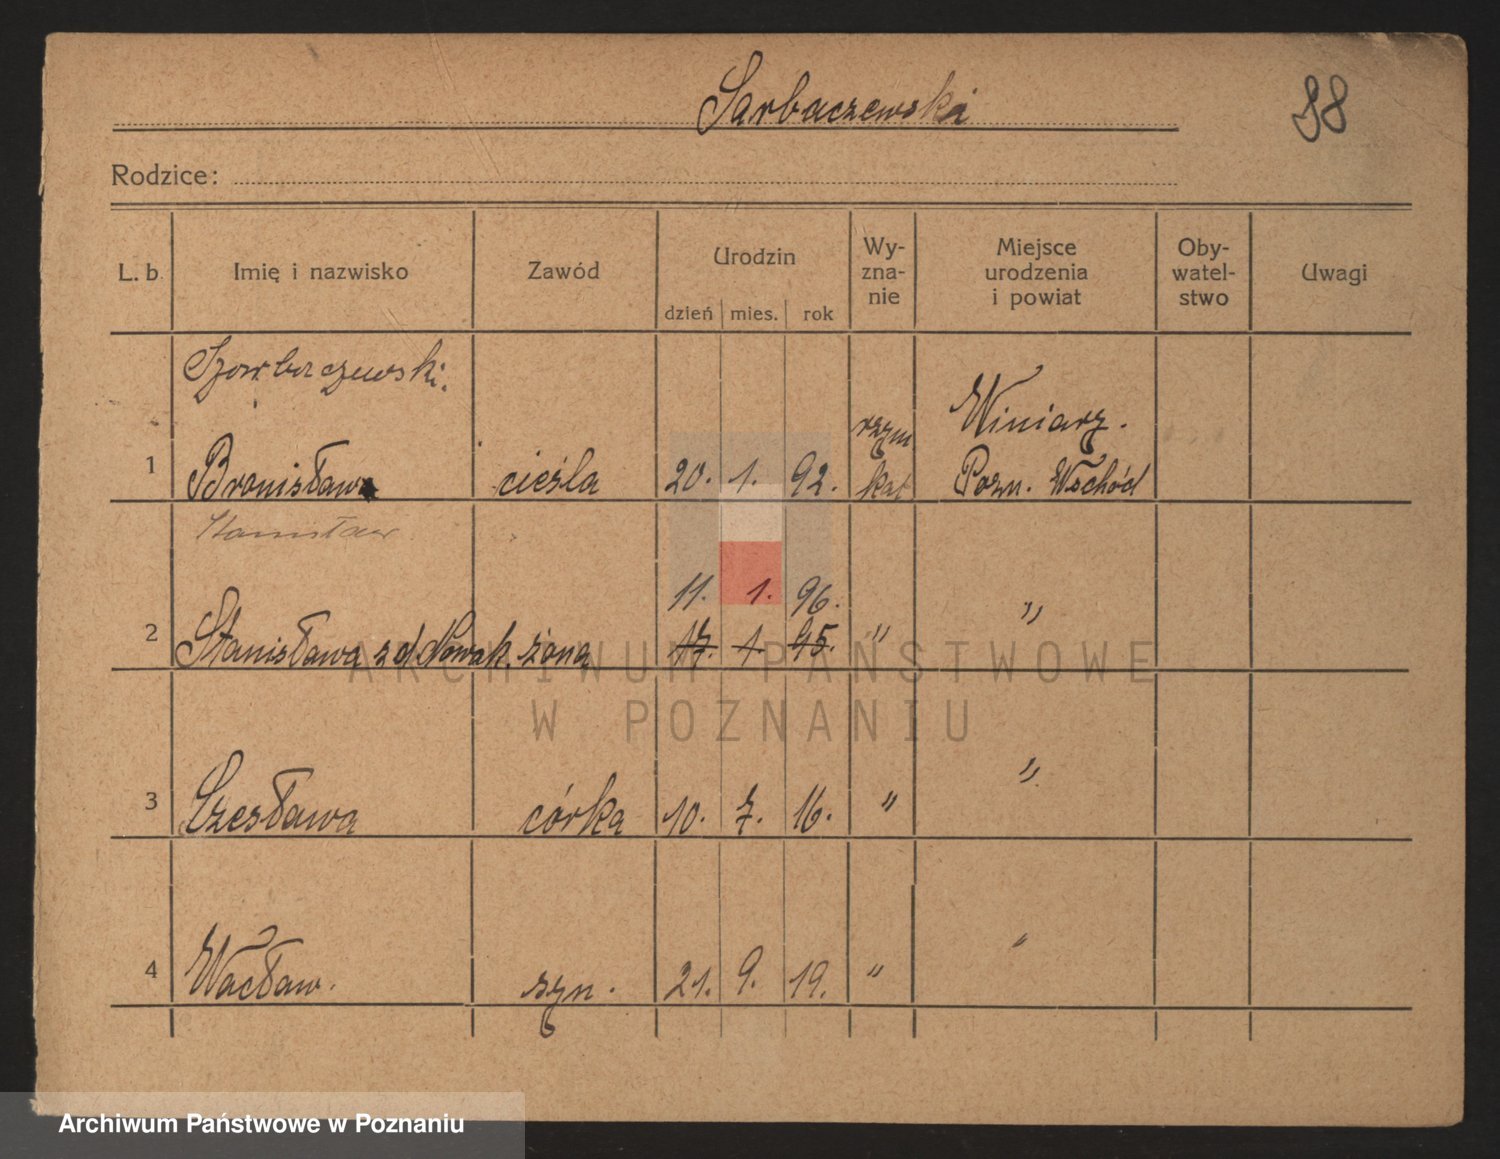 Sarbaczewski
98
Rodzice:
L. b. Imię i nazwisko Zawód Urodzin dzień mies. rok Wy-zna-nie Miejsce urodzenia i powiat Oby-watel-stwo Uwagi
Szarbaczewski.
1 Bronisław cieśla 20. 1. 92. rzym kat Winiary. Pozn. Wschód
Stanisław
11. 1. 96.
2 Stanisława z d Nowak. żona 17. 1. 95. " "
3 Czesława córka 10. 7. 16. " "
4 Wacław. syn. 21. 9. 19. " "
ARCHIWUM PAŃSTWOWE
W POZNANIU
Archiwum Państwowe w Poznaniu